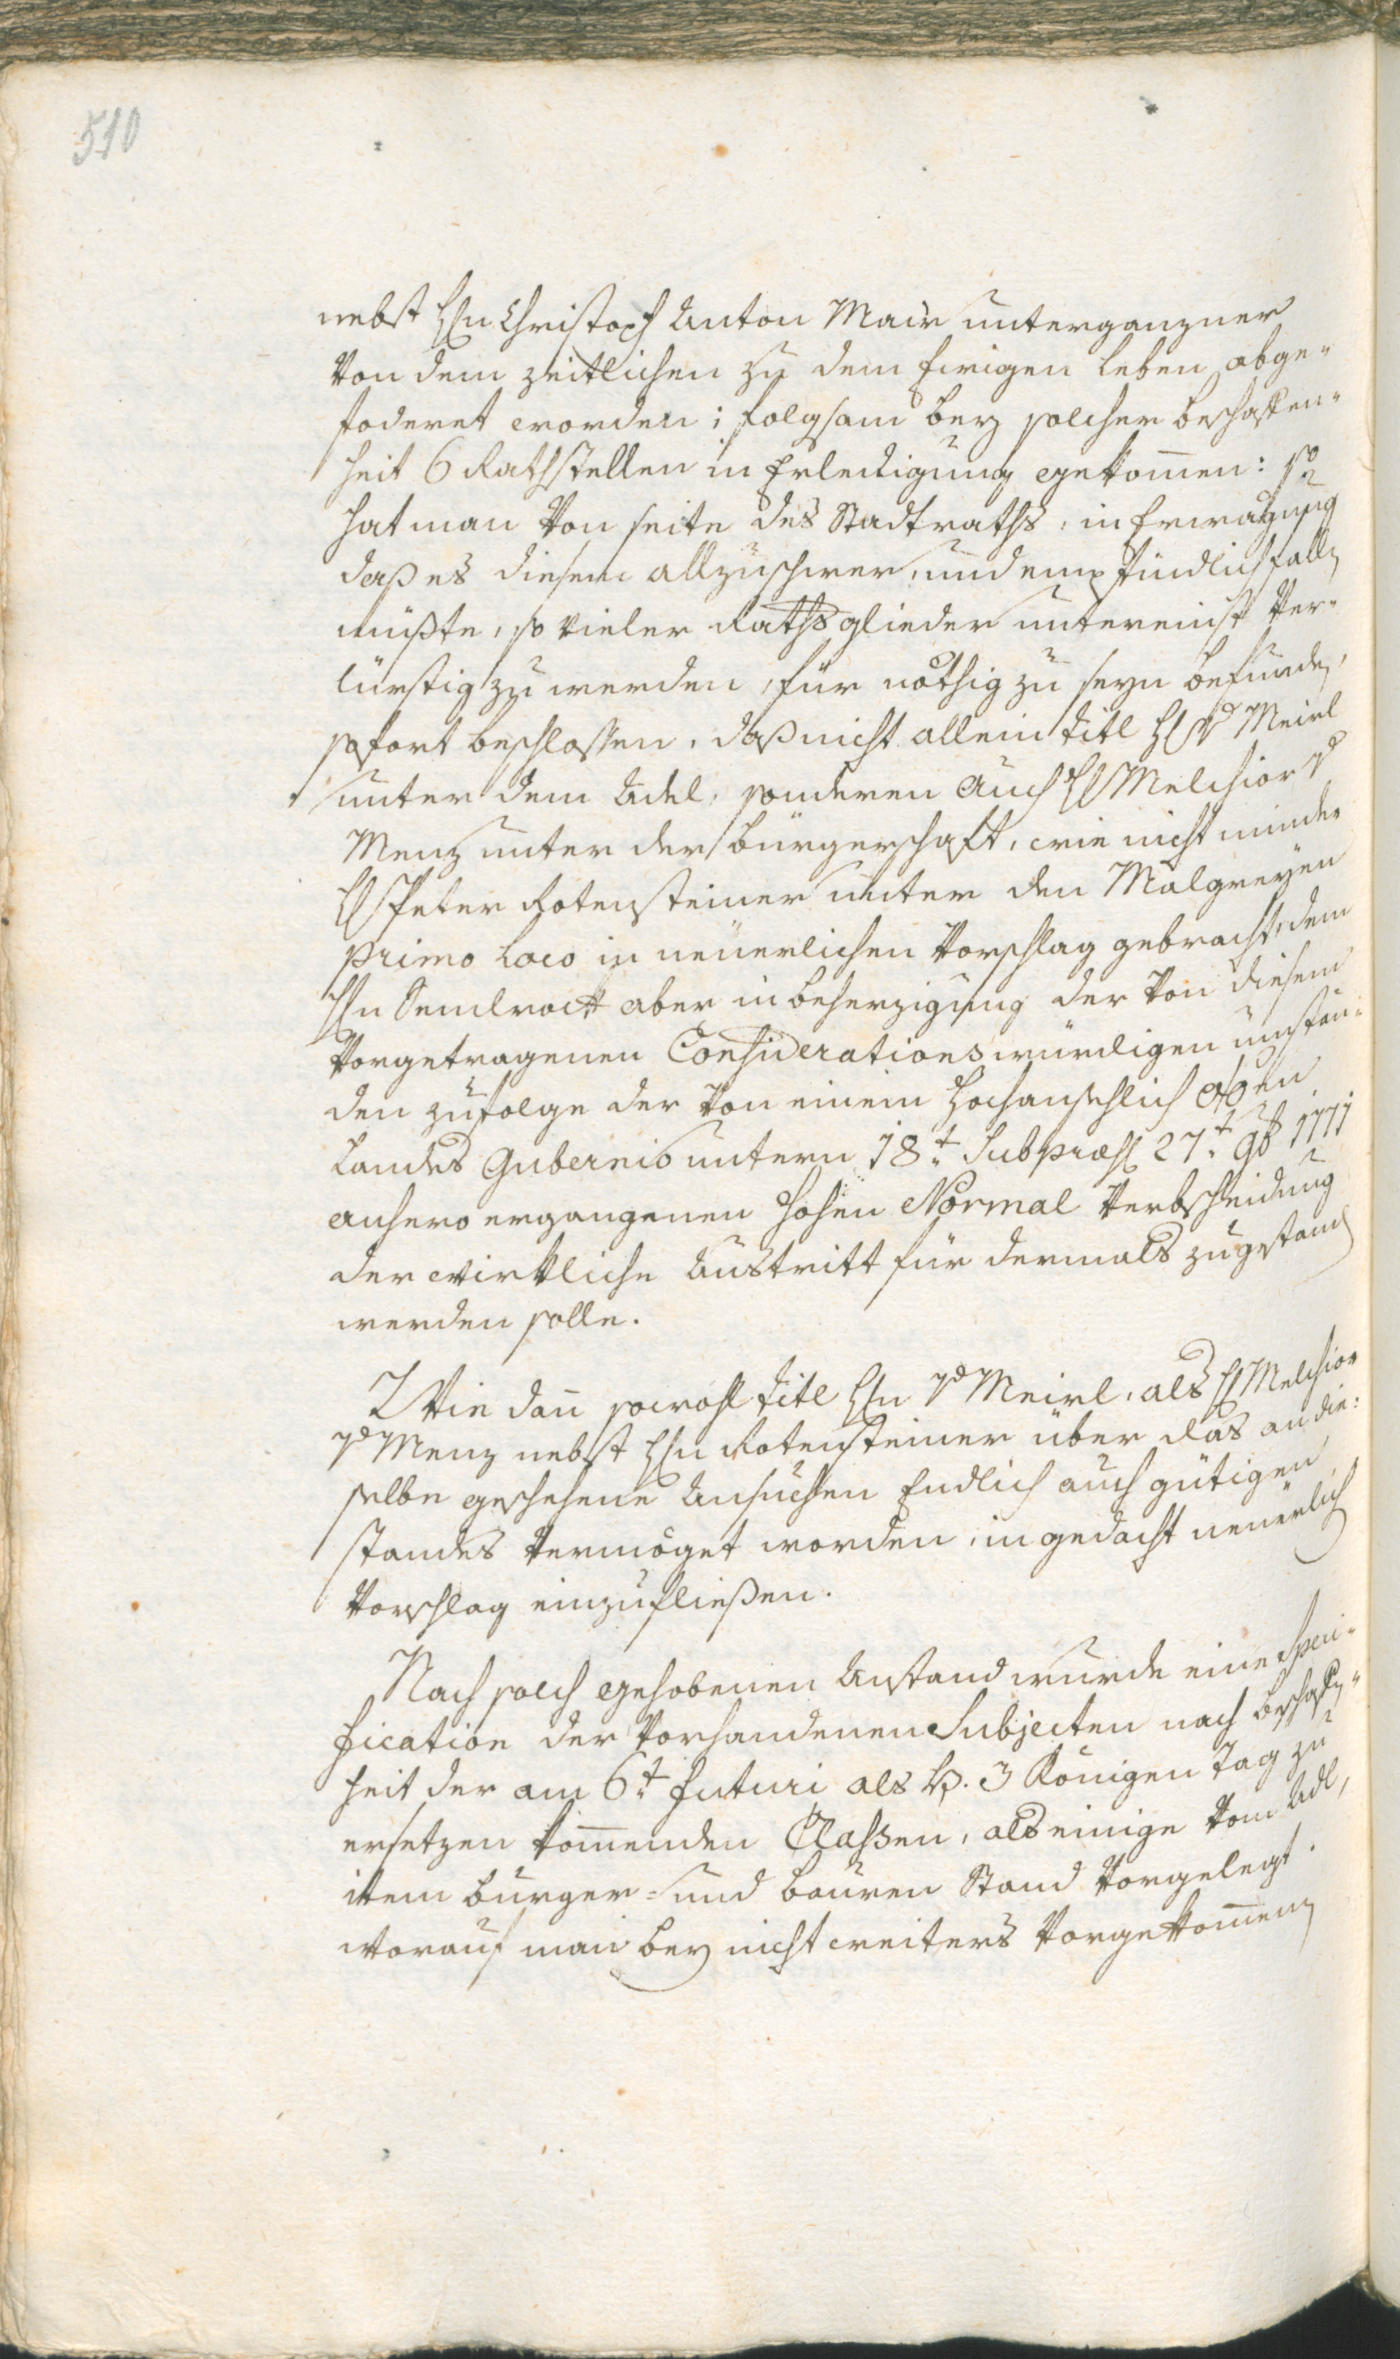 510
nebst Hn Christoph Anton Mair unterganzner
Von dem zeitlichen zu dem Ewigen Leben abge-
foderet worden; folgsam bey solcher beschaffen-
heit 6 Rathstellen in Erledigung gekom̄en: so
hat man Von seite des Stadtraths, in Erwägung
daß es diesem allzuschwer, und empfindlich falle
müßte, so vieler Rathsglieder untereinst Ver-
lürstig zu werden, für nöthig zu seyn befunden,
sofort beschlossen, daß nicht allein titl H Meirl
unter dem Adel, sonderen auch H Melchior
Menz unter der Bürgerschaft, wie nicht minder
H Peter Rotensteiner unter den Malgreyen
primo Loco in neuerlichen Vorschlag gebracht, dem
Hn Sendrock aber in beherzigung der Von diesem
Vorgetragenen Considerationswürdigen umstän-
den zufolge der Von einem Hochansehlich
Landes Gubernio untern 18t. Sub præs 27t. 9b 1771
anhero ergangenen hohen Normal Verbscheidung
der wirkliche Austritt für dermals zugestand
werden solle.
Wie dan̄ sowohl titl Hn Vd Meirl, als H Melchior
Vd Menz nebst Hn Rotensteiner über das an die-
selbe geschehene Ansuchen Endlich auch gütigen
standes Vermöget worden, in gedacht neuerlich
Vorschlag einzufließen.
Nach solch gehobenen Anstand wurde eine Speci-
fication der Vorhandenen Subjecten nach beschaffen-
heit der am 6t. futuri als H. 3 Königen Tag zu
ersetzen kom̄enden Classen, als einige Vom Adl,
item Burger- und Bauren Stand Vorgelegt.
Worauf man bey nicht weiters Vorgekom̄enen